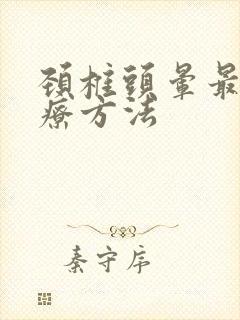 頸椎頭暈最
療方法
秦守序